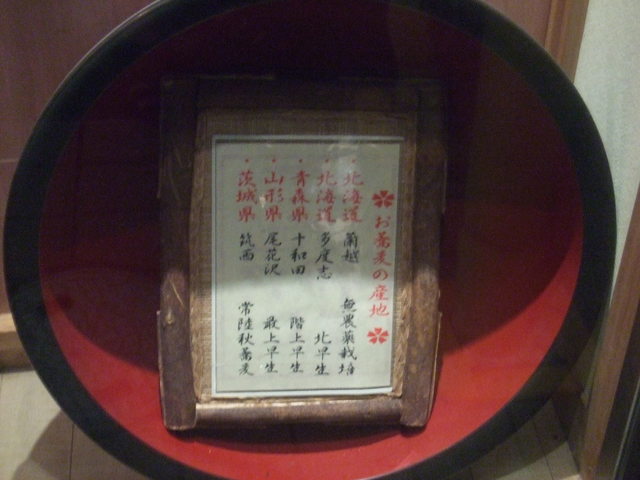 お蕎麦の産地
・北海道 蘭越 無農薬栽培
・北海道 多度志 北早生
・青森県 十和田 階上早生
・山形県 尾花沢 最上早生
・茨城県 筑西 常陸秋蕎麦